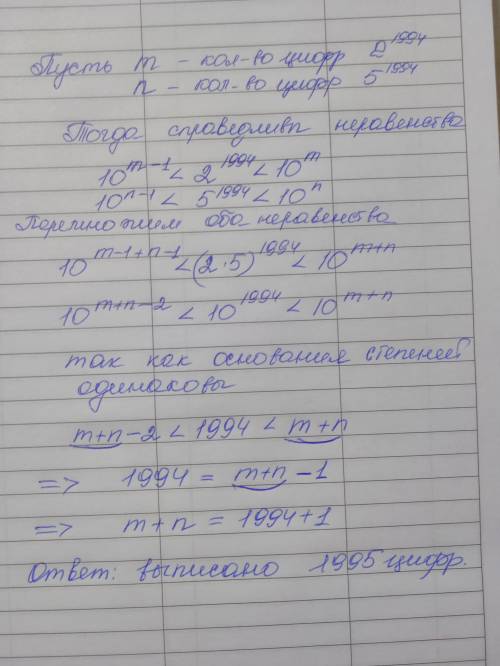 Пусть m - кол-во цифр 2^1994
n - кол-во цифр 5^1994
Тогда справедливы неравенства
10^m-1 < 2^1994 < 10^m
10^n-1 < 5^1994 < 10^n
Перемножим оба неравенства
10^m-1+n-1 < (2·5)^1994 < 10^m+n
10^m+n-2 < 10^1994 < 10^m+n
так как основания степеней
одинаковы
m+n-2 < 1994 < m+n
=> 1994 = m+n-1
=> m+n = 1994+1
Ответ: выписано 1995 цифр.